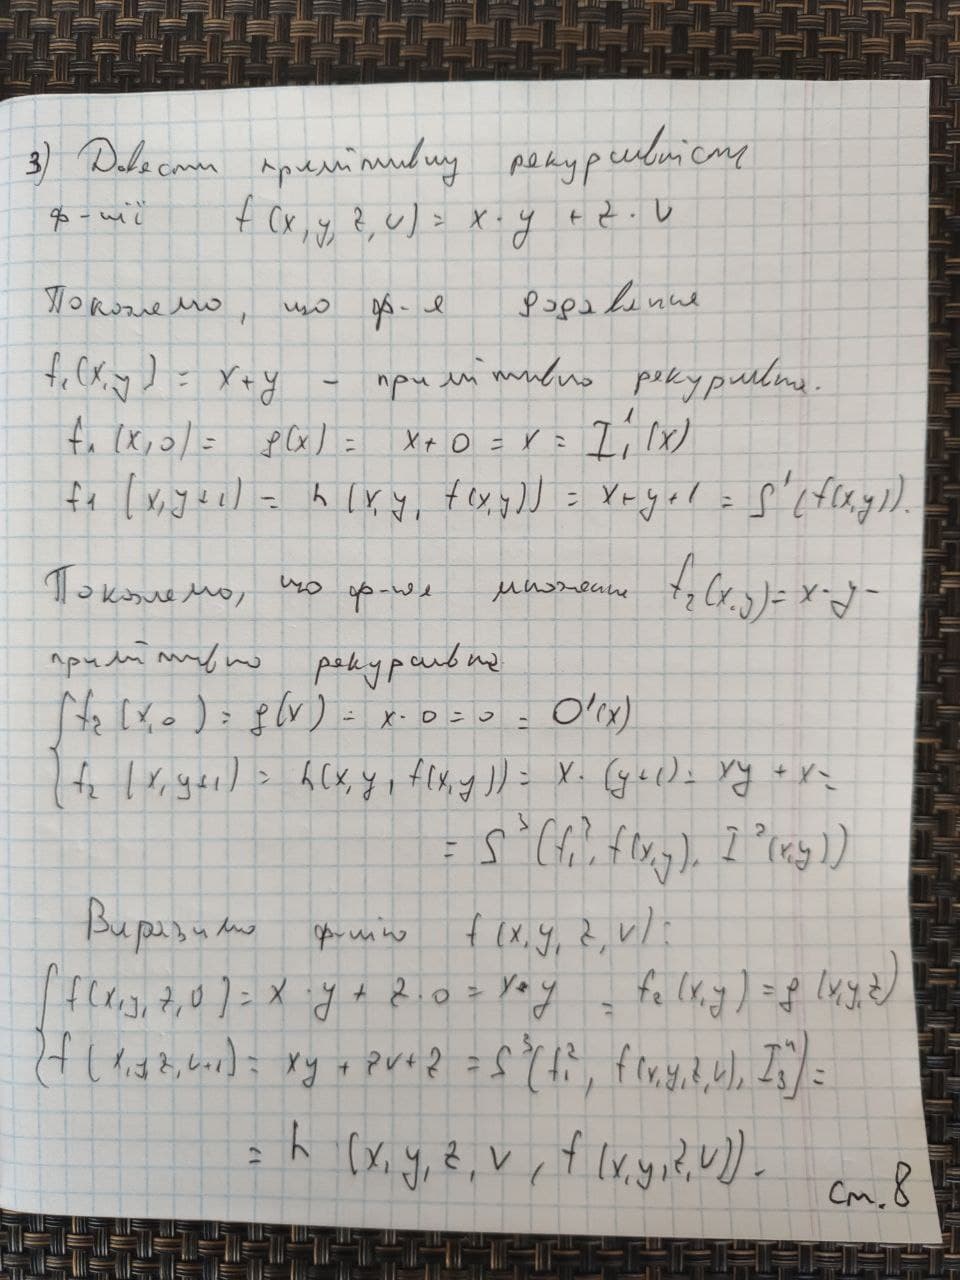 3) Довести примітивну рекурсивність
ф-ції f(x,y,z,v) = x·y + z·v
Покажемо, що ф-я додавання
f₁(x,y) = x+y – примітивно рекурсивна.
f₁(x,0) = g(x) = x+0 = x = I₁¹(x)
f₁(x,y+1) = h(x,y,f(x,y)) = x+y+1 = S¹(f(x,y)).
Покажемо, що ф-ія множення f₂(x,y) = x·y –
примітивно рекурсивна
{ f₂(x,0) = g(x) = x·0 = 0 = O¹(x)
f₂(x,y+1) = h(x,y,f(x,y)) = x·(y+1) = xy + x =
= S³(f₁², f(x,y), I²(x,y))
Виразимо ф-цію f(x,y,z,v):
{ f(x,y,z,0) = x·y + z·0 = x·y = f₂(x,y) = g(x,y,z)
f(x,y,z,v+1) = xy + zv + z = S³(f₁², f(x,y,z,v), I₃⁴) =
= h(x,y,z,v,f(x,y,z,v)).
ст. 8